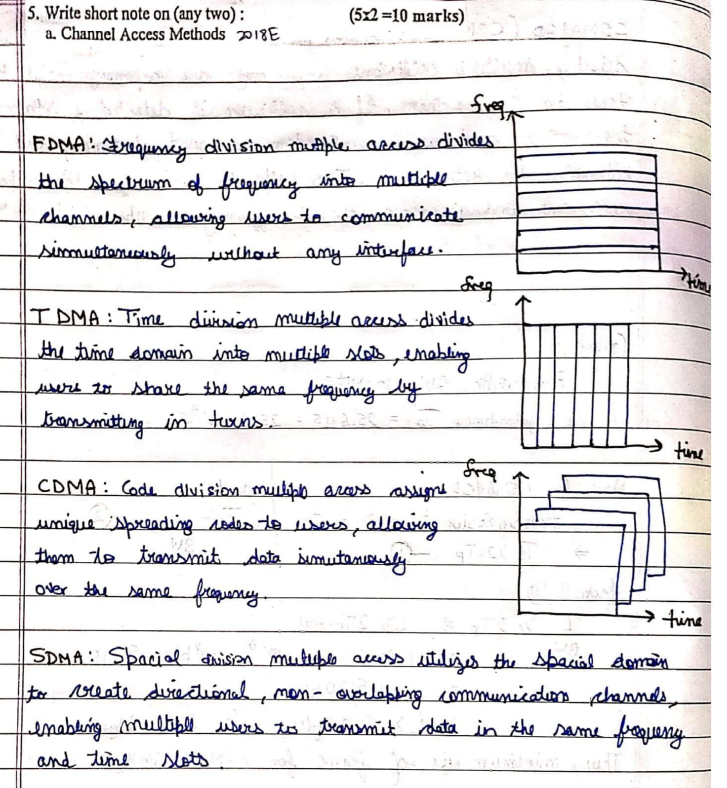 5. Write short note on (any two) : (5x2 =10 marks)
a. Channel Access Methods 2018E
freq
FDMA : Frequency division multiple access divides
the spectrum of frequency into multiple
channels, allowing users to communicate
simmultaneously without any interface.
time
freq
TDMA : Time division multiple access divides
the time domain into multiple slots, enabling
users to share the same frequency by
transmitting in turns.
time
freq
CDMA : Code division multiple access assigns
unique spreading codes to users, allowing
them to transmit data simutaneously
over the same frequency.
time
SDMA : Spacial division multiple access utilizes the spacial domain
to create directional, non-overlapping communication channels,
enabling multiple users to transmit data in the same frequency
and time slots.